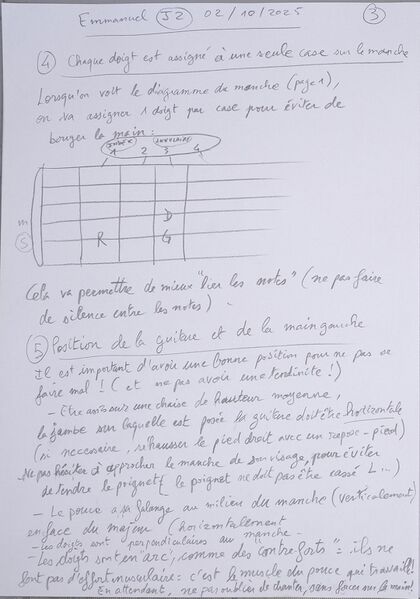 Emmanuel J2 02/10/2025 3
4 Chaque doigt est assigné à une seule case sur le manche
Lorsqu'on voit le diagramme du manche (page 1),
on va assigner 1 doigt par case pour éviter de
bouger la main :
INDEX ANNULAIRE
1 2 3 4
m
D
5 R G
Cela va permettre de mieux "lier les notes" (ne pas faire
de silence entre les notes).
5 Position de la guitare et de la main gauche
Il est important d'avoir une bonne position pour ne pas se
faire mal ! (et ne pas avoir une tendinite !)
- Etre assis sur une chaise de hauteur moyenne,
la jambe sur laquelle est posée la guitare doit être horizontale
(si necessaire, réhausser le pied droit avec un repose-pied)
Ne pas hésiter à approcher le manche de son visage, pour éviter
de tendre le poignet (le poignet ne doit pas être cassé L...)
- Le pouce a sa phalange au milieu du manche (verticalement)
en face du majeur (horizontalement
- Les doigts sont perpendiculaires au manche
- Les doigts sont en "arc", comme des contreforts" = ils ne
font pas d'effort musculaire : c'est le muscle du pouce qui travaille !
En attendant, ne pas oublier de chanter, sans forcer sur la main !